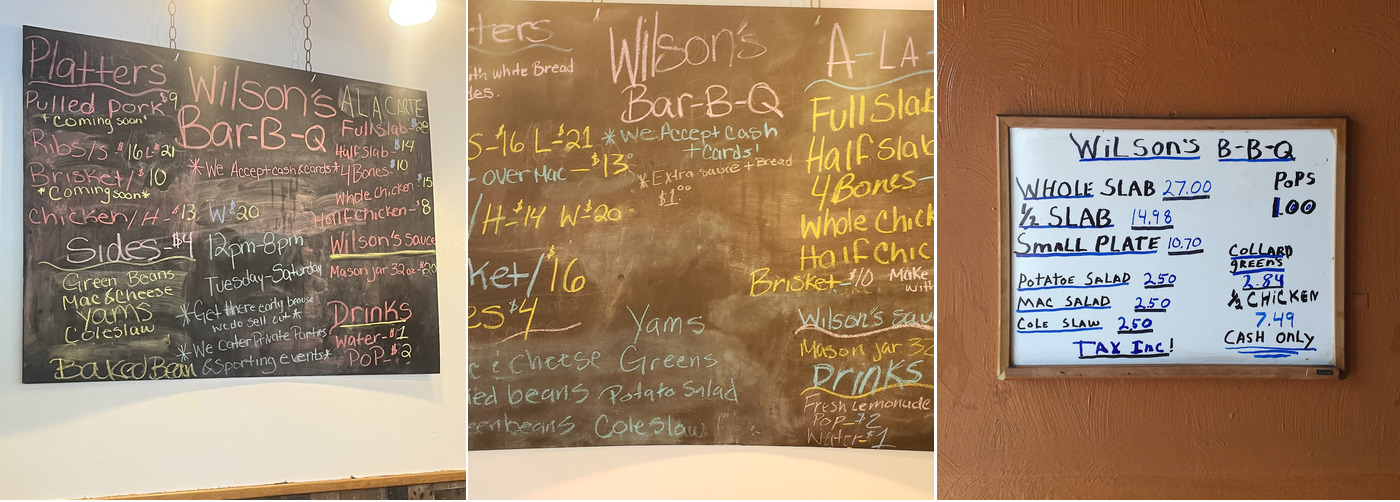 Platters
Pulled pork $9
*Coming soon*
Ribs/S-$16 L-$21
Brisket/$10
*Coming soon*
Chicken/H-$13 W-$20
Sides-$4
Green Beans
Mac & Cheese
Yams
Coleslaw
Baked Bean
Wilson's
Bar-B-Q
*We Accept cash & cards*
12pm-8pm
Tuesday-Saturday
*Get there early because
we do sell out*
*We Cater Private Parties
& Sporting events*
A LA CARTE
Full Slab-$28
Half Slab-$14
4 Bones-$10
Whole Chicken-$15
Half Chicken-$8
Wilson's Sauce
Mason jar 32oz-$20
Drinks
Water-$1
POP-$2
ters
ith white Bread
des.
S-16 L-$21
over Mac-$13
/H-$14 W-$20
ket/$16
es $4
c & cheese
ked beans
eenbeans
Wilson's
Bar-B-Q
*We Accept Cash
+ Cards!
*Extra sauce + Bread
$1.00
Yams
Greens
Potato Salad
Coleslaw
A-LA-
Full Slab
Half Slab
4 Bones-
Whole Chick
Half Chic
Brisket-$10 Make
with
Wilson's Sau
Mason jar 32
Drinks
Fresh Lemonade
Pop-$2
Water-$1
WiLSON'S B-B-Q
WHOLE SLAB 27.00
½ SLAB 14.98
SMALL PLATE 10.70
POTATOE SALAD 2.50
MAC SALAD 2.50
COLE SLAW 2.50
TAX Inc!
POPS
1.00
COLLARD
GREENS
2.84
½ CHiCKEN
7.49
CASH ONLY